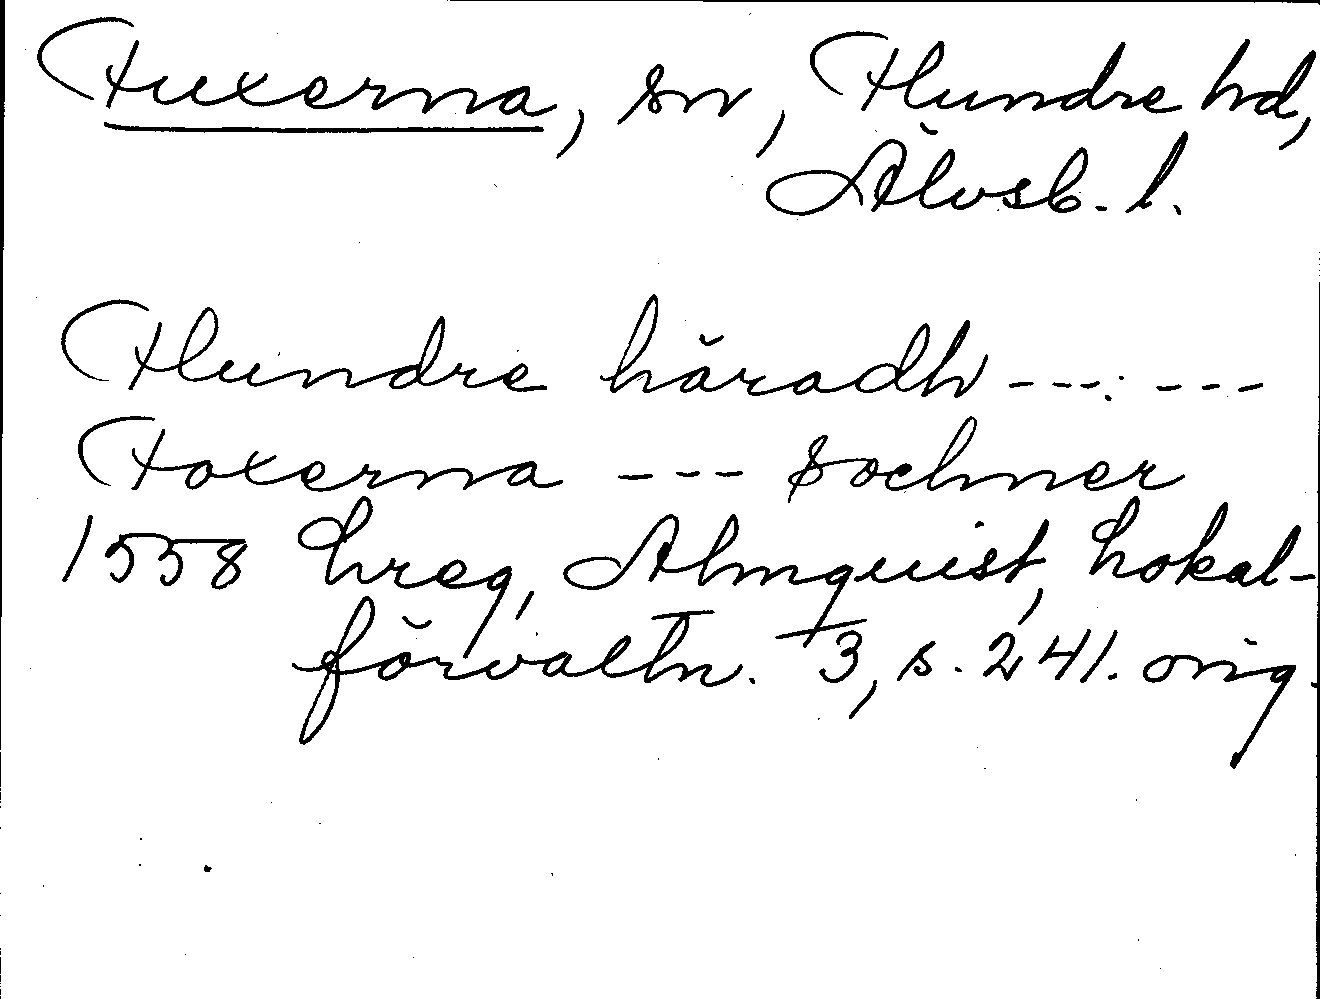 Fuxerna, sn, Flundre hd,
Älvsb. l.
Flundre häradh ---:---
Foxerna --- Sochner
1558 hreg, Almquist, Lokal-
förvaltn. 3, s. 241. orig.